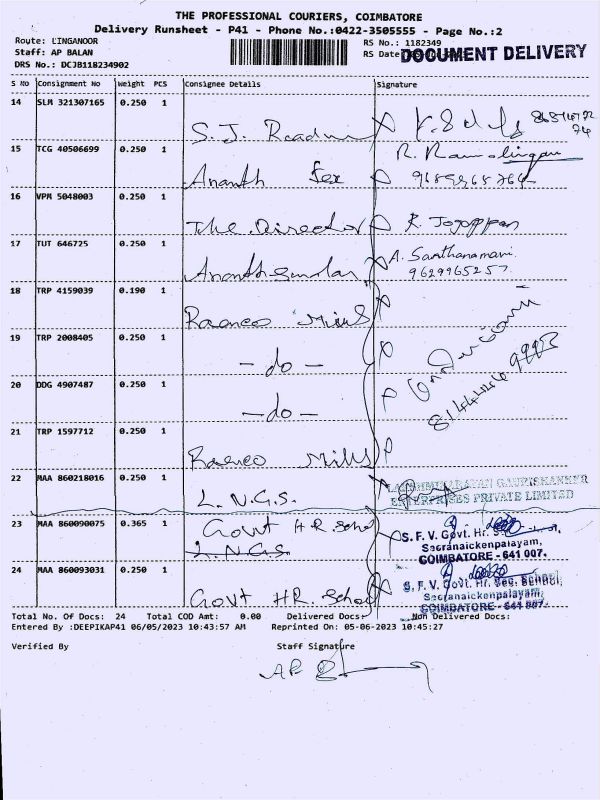 THE PROFESSIONAL COURIERS, COIMBATORE
Delivery Runsheet - P41 - Phone No.:0422-3505555 - Page No.:2
Route: LINGANOOR
RS No.: 1182349
Staff: AP BALAN
RS Date
DOCUMENT DELIVERY
DRS No.: DCJB118234902
S No Consignment No Weight PCS Consignee Details Signature
14 SLM 321307165 0.250 1 S.J.
15 TCG 40506699 0.250 1 Ananth Tex
R. Ramalingam
16 VPM 5048003 0.250 1 The Director
17 TUT 646725 0.250 1
A. Santhanamani
9629965257
18 TRP 4159039 0.190 1 Mills
19 TRP 2008405 0.250 1 - do -
20 DDG 4907487 0.250 1 - do -
21 TRP 1597712 0.250 1 Mills
22 MAA 860218016 0.250 1 L.N.G.S.
LAKSHMINARAYAN GAURISHANKER
ENTERPRISES PRIVATE LIMITED
23 MAA 860090075 0.365 1 Govt HR. Scho
L.N.G.S
S. F. V. Govt. Hr.
Seeranaickenpalayam,
COIMBATORE - 641 007.
24 MAA 860093031 0.250 1 Govt HR. School
S. F. V. Govt. Hr. Sec. School,
Seeranaickenpalayam,
COIMBATORE - 641 007.
Total No. Of Docs: 24 Total COD Amt: 0.00 Delivered Docs: Non Delivered Docs:
Entered By :DEEPIKAP41 06/05/2023 10:43:57 AM Reprinted On: 05-06-2023 10:45:27
Verified By Staff Signature